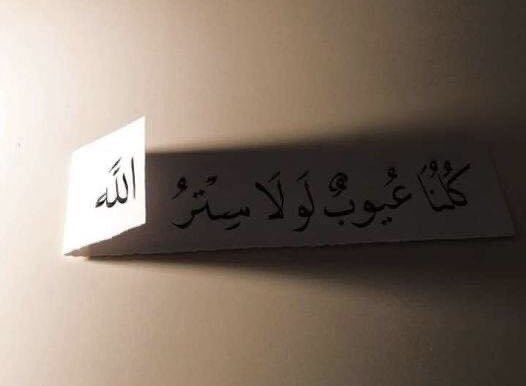 كُلُنَا عُيُوبٌ لَولَا سِتْرُ اللَّه